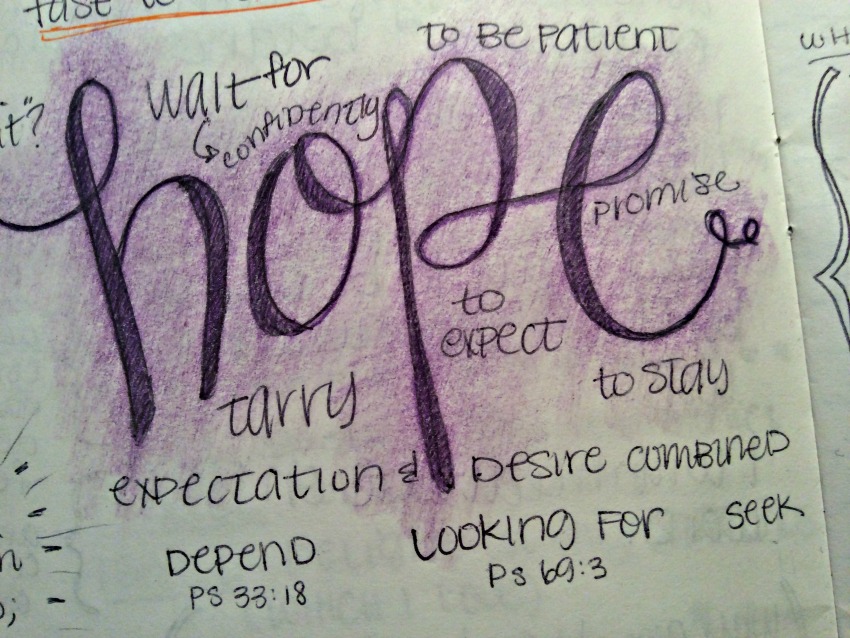 to BE patient
Wait for
confidently
it"?
hope
promise
to
expect
to stay
tarry
expectation & Desire combined
Looking For seek
Depend
PS 33:18
PS 69:3
WH